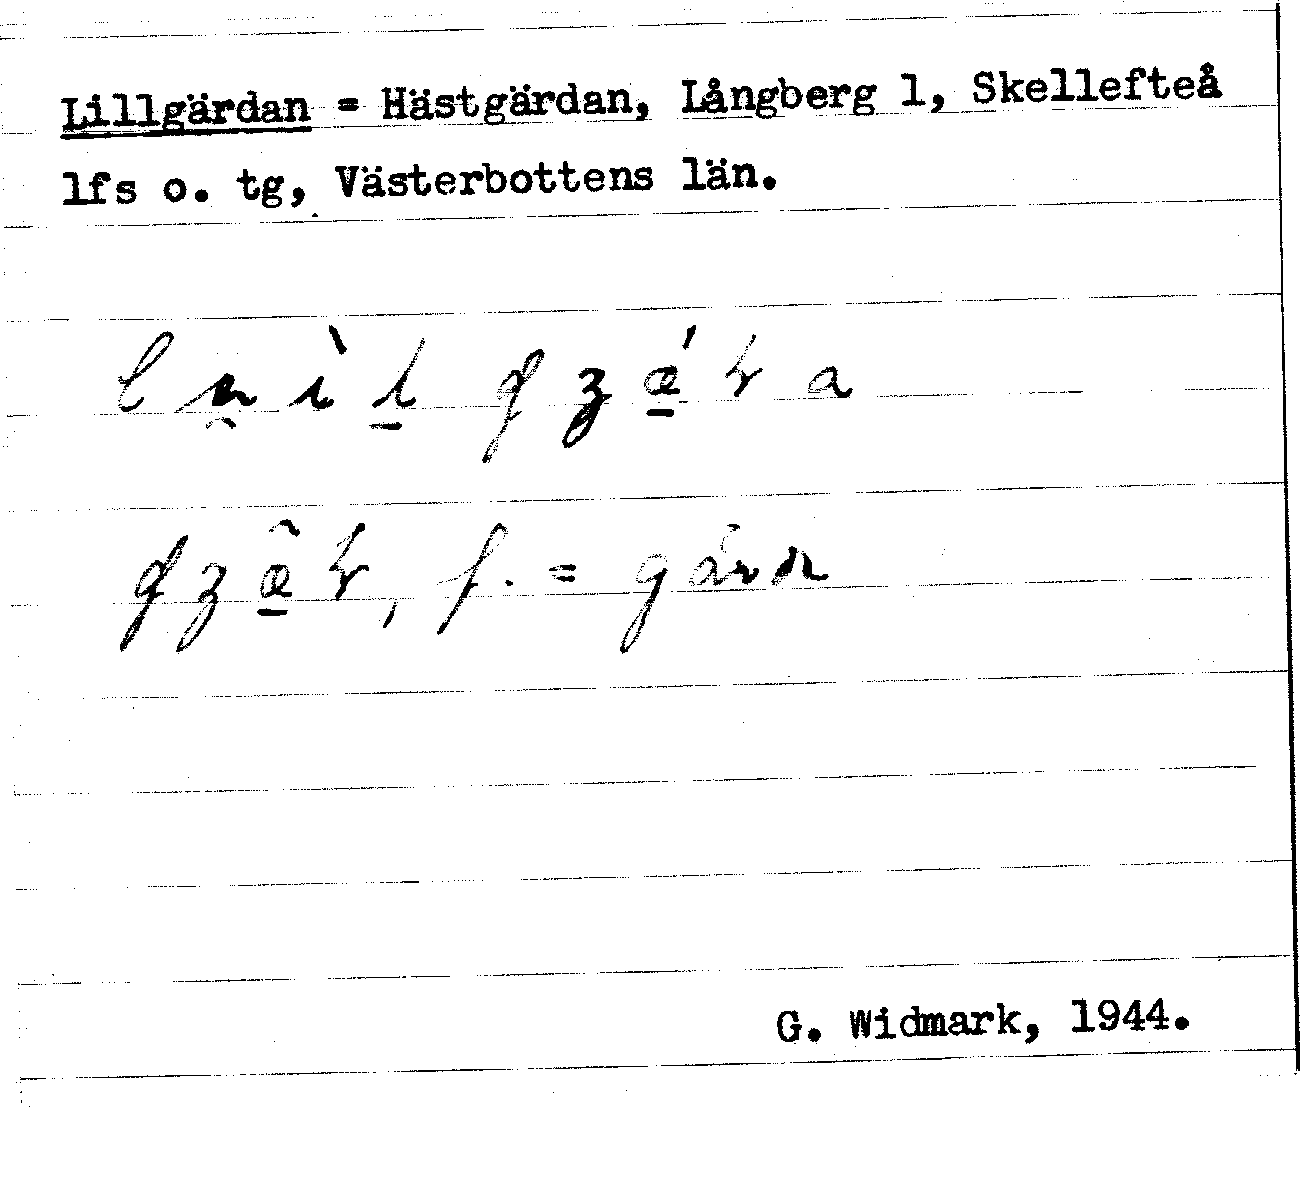 Lillgärdan = Hästgärdan, Långberg 1, Skellefteå
lfs o. tg, Västerbottens län.
f. =
G. Widmark, 1944.